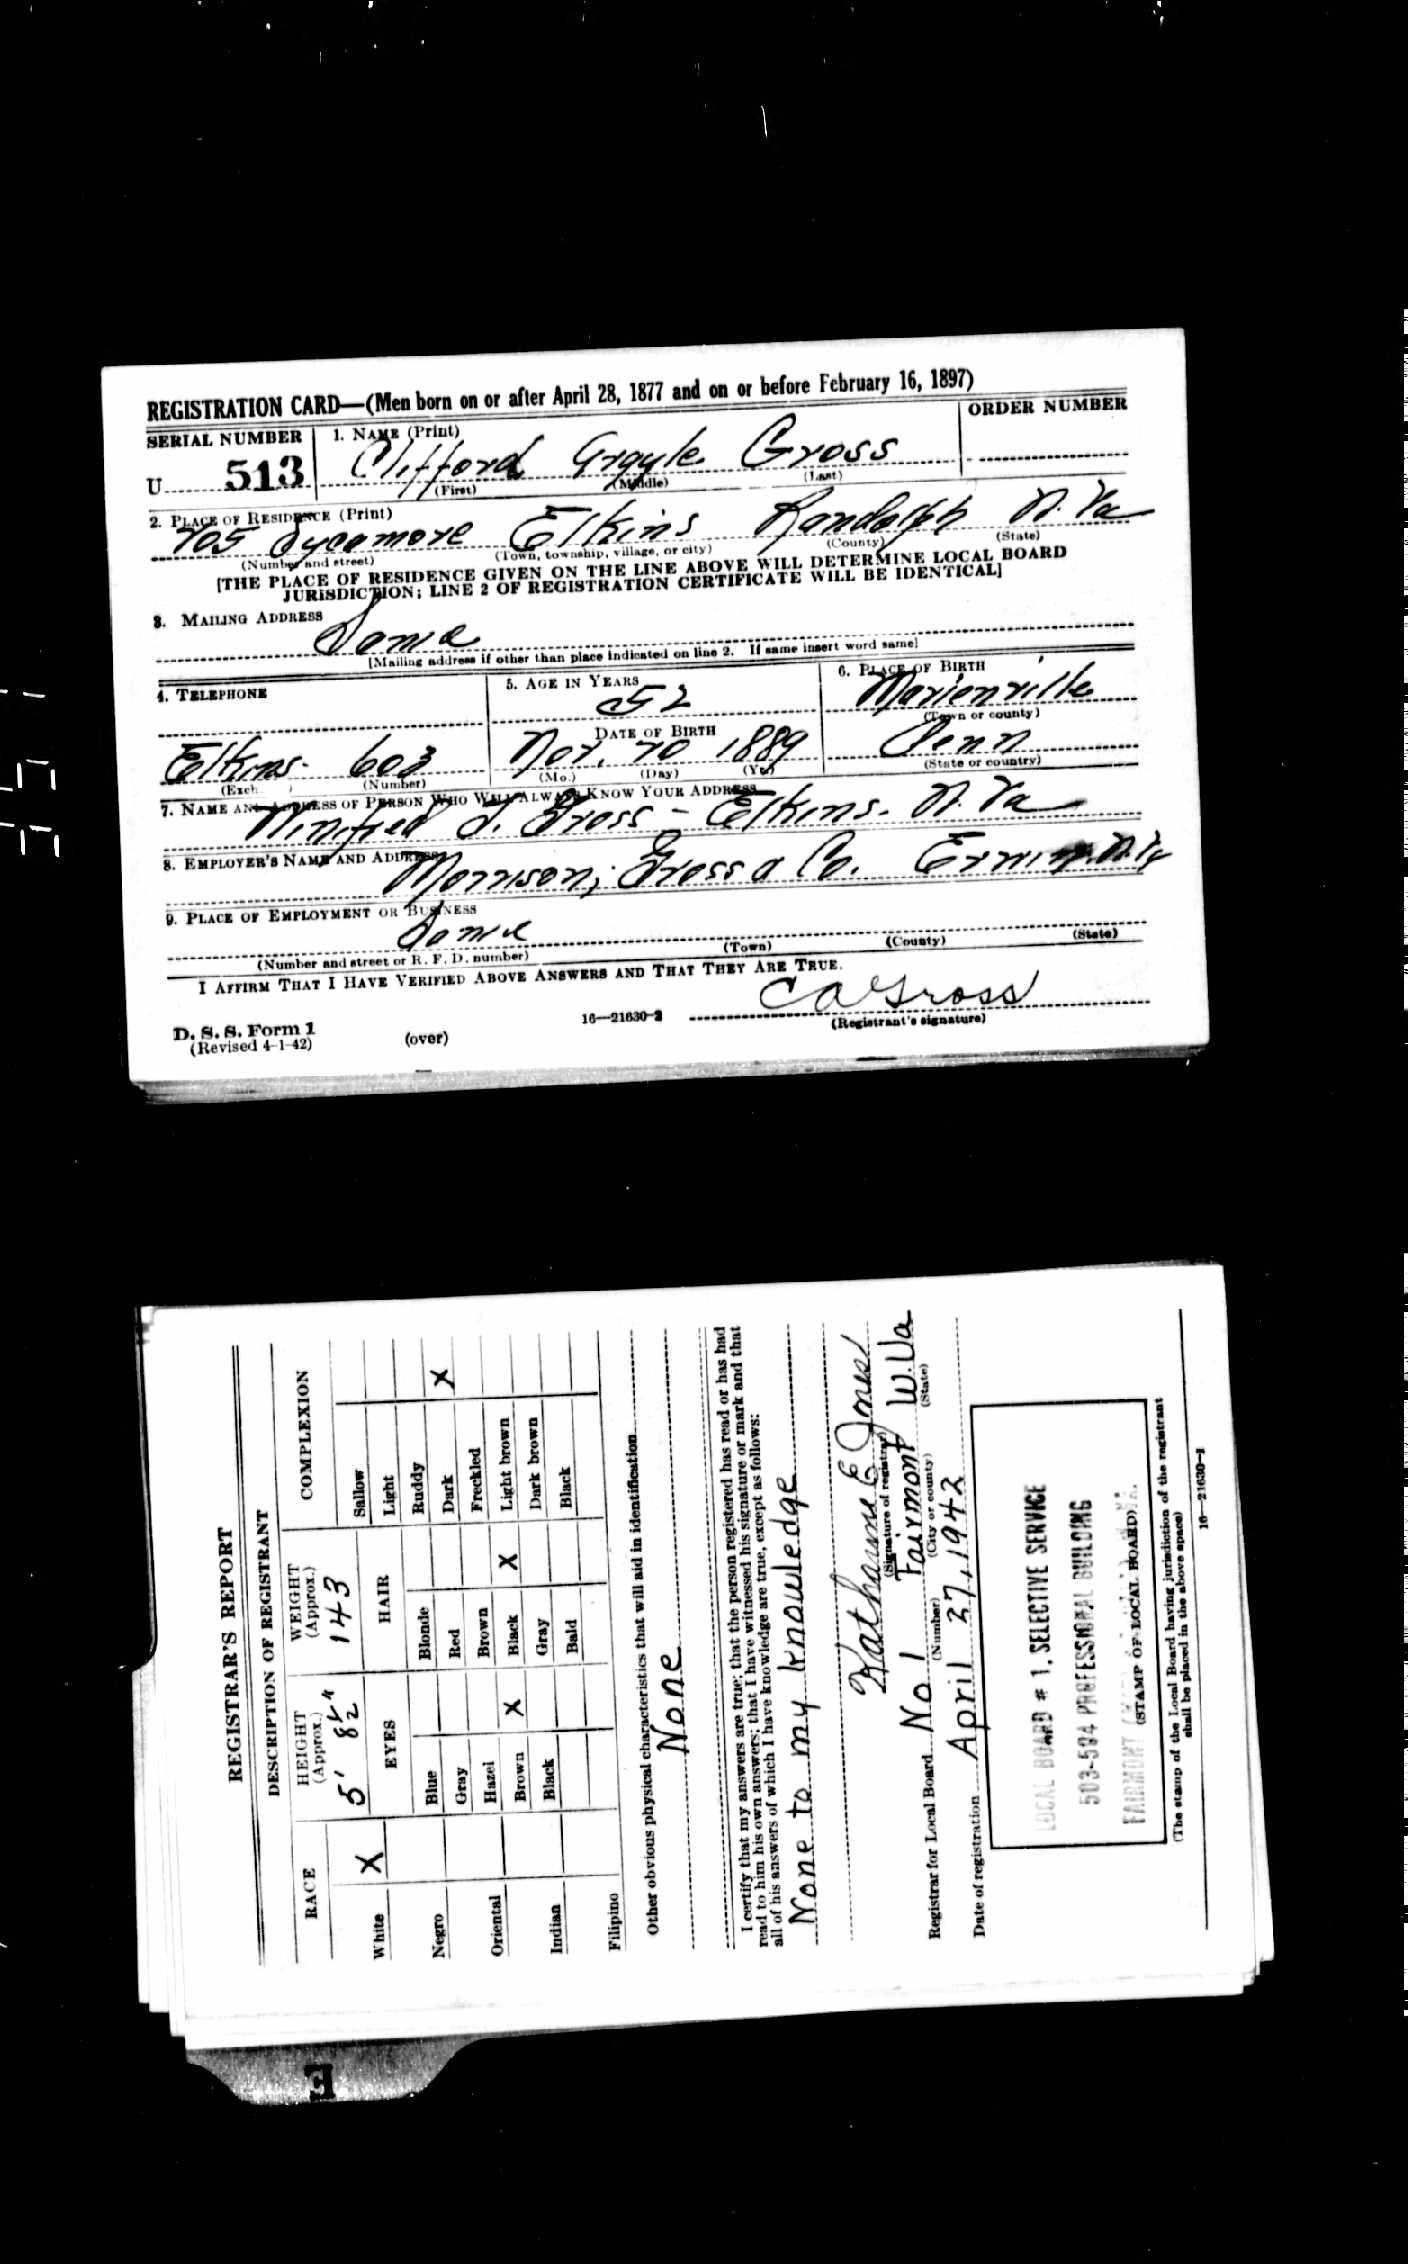 REGISTRATION CARD—(Men born on or after April 28, 1877 and on or before February 16, 1897)
SERIAL NUMBER
1. NAME (Print)
ORDER NUMBER
U 513
Clifford Argyle Gross
(First) (Middle) (Last)
2. PLACE OF RESIDENCE (Print)
705 Sycamore Elkins Randolph W. Va
(Number and street) (Town, township, village, or city) (County) (State)
[THE PLACE OF RESIDENCE GIVEN ON THE LINE ABOVE WILL DETERMINE LOCAL BOARD
JURISDICTION; LINE 2 OF REGISTRATION CERTIFICATE WILL BE IDENTICAL]
3. MAILING ADDRESS
Same
[Mailing address if other than place indicated on line 2. If same insert word same]
4. TELEPHONE
5. AGE IN YEARS
6. PLACE OF BIRTH
52
Marienville
(Town or county)
DATE OF BIRTH
Elkins- 603
Nov. 20 1889
Penn
(Exch. ) (Number)
(Mo.) (Day) (Yr.)
(State or country)
7. NAME AND ADDRESS OF PERSON WHO WILL ALWAYS KNOW YOUR ADDRESS
Winifred J. Gross - Elkins. W. Va
8. EMPLOYER'S NAME AND ADDRESS
Morrison, Gross & Co. W. Va
9. PLACE OF EMPLOYMENT OR BUSINESS
Same
(Number and street or R. F. D. number) (Town) (County) (State)
I AFFIRM THAT I HAVE VERIFIED ABOVE ANSWERS AND THAT THEY ARE TRUE.
C A Gross
D. S. S. Form 1
(Revised 4-1-42)
(over)
16—21630-2
(Registrant's signature)
REGISTRAR'S REPORT
DESCRIPTION OF REGISTRANT
RACE
HEIGHT
(Approx.)
WEIGHT
(Approx.)
COMPLEXION
5' 8½" 143
White X
EYES
HAIR
Sallow
Light
Ruddy
Dark X
Freckled
Light brown
Dark brown
Black
Negro
Oriental
Indian
Filipino
Blue
Gray
Hazel
Brown X
Black
Blonde
Red
Brown
Black X
Gray
Bald
Other obvious physical characteristics that will aid in identification
None
I certify that my answers are true; that the person registered has read or has had
read to him his own answers; that I have witnessed his signature or mark and that
all of his answers of which I have knowledge are true, except as follows:
None to my knowledge
Katharine E Jones
(Signature of registrar)
Registrar for Local Board No. 1 Fairmont W. Va
(Number) (City or county) (State)
Date of registration April 27, 1942
LOCAL BOARD # 1, SELECTIVE SERVICE
503-504 PROFESSIONAL BUILDING
FAIRMONT
(STAMP OF LOCAL BOARD)
(The stamp of the Local Board having jurisdiction of the registrant
shall be placed in the above space)
16—21630-2